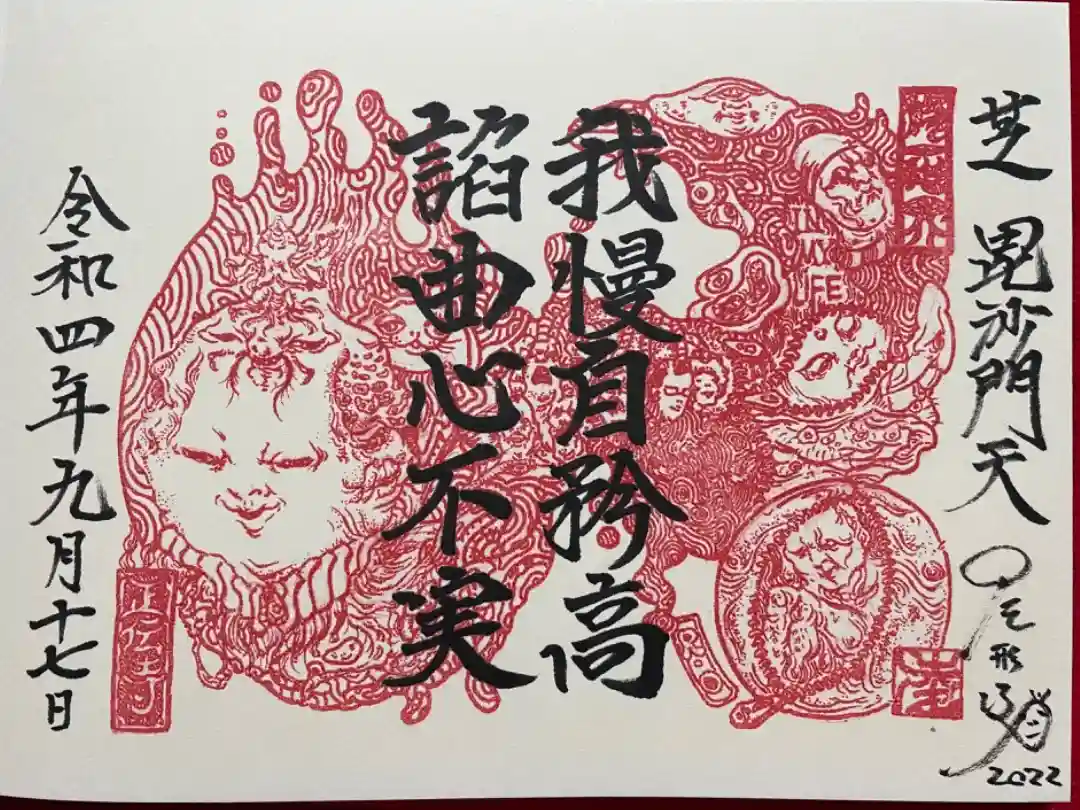 芝 毘沙門天
我慢自矜高
諂曲心不実
令和四年九月十七日
正伝寺
2022